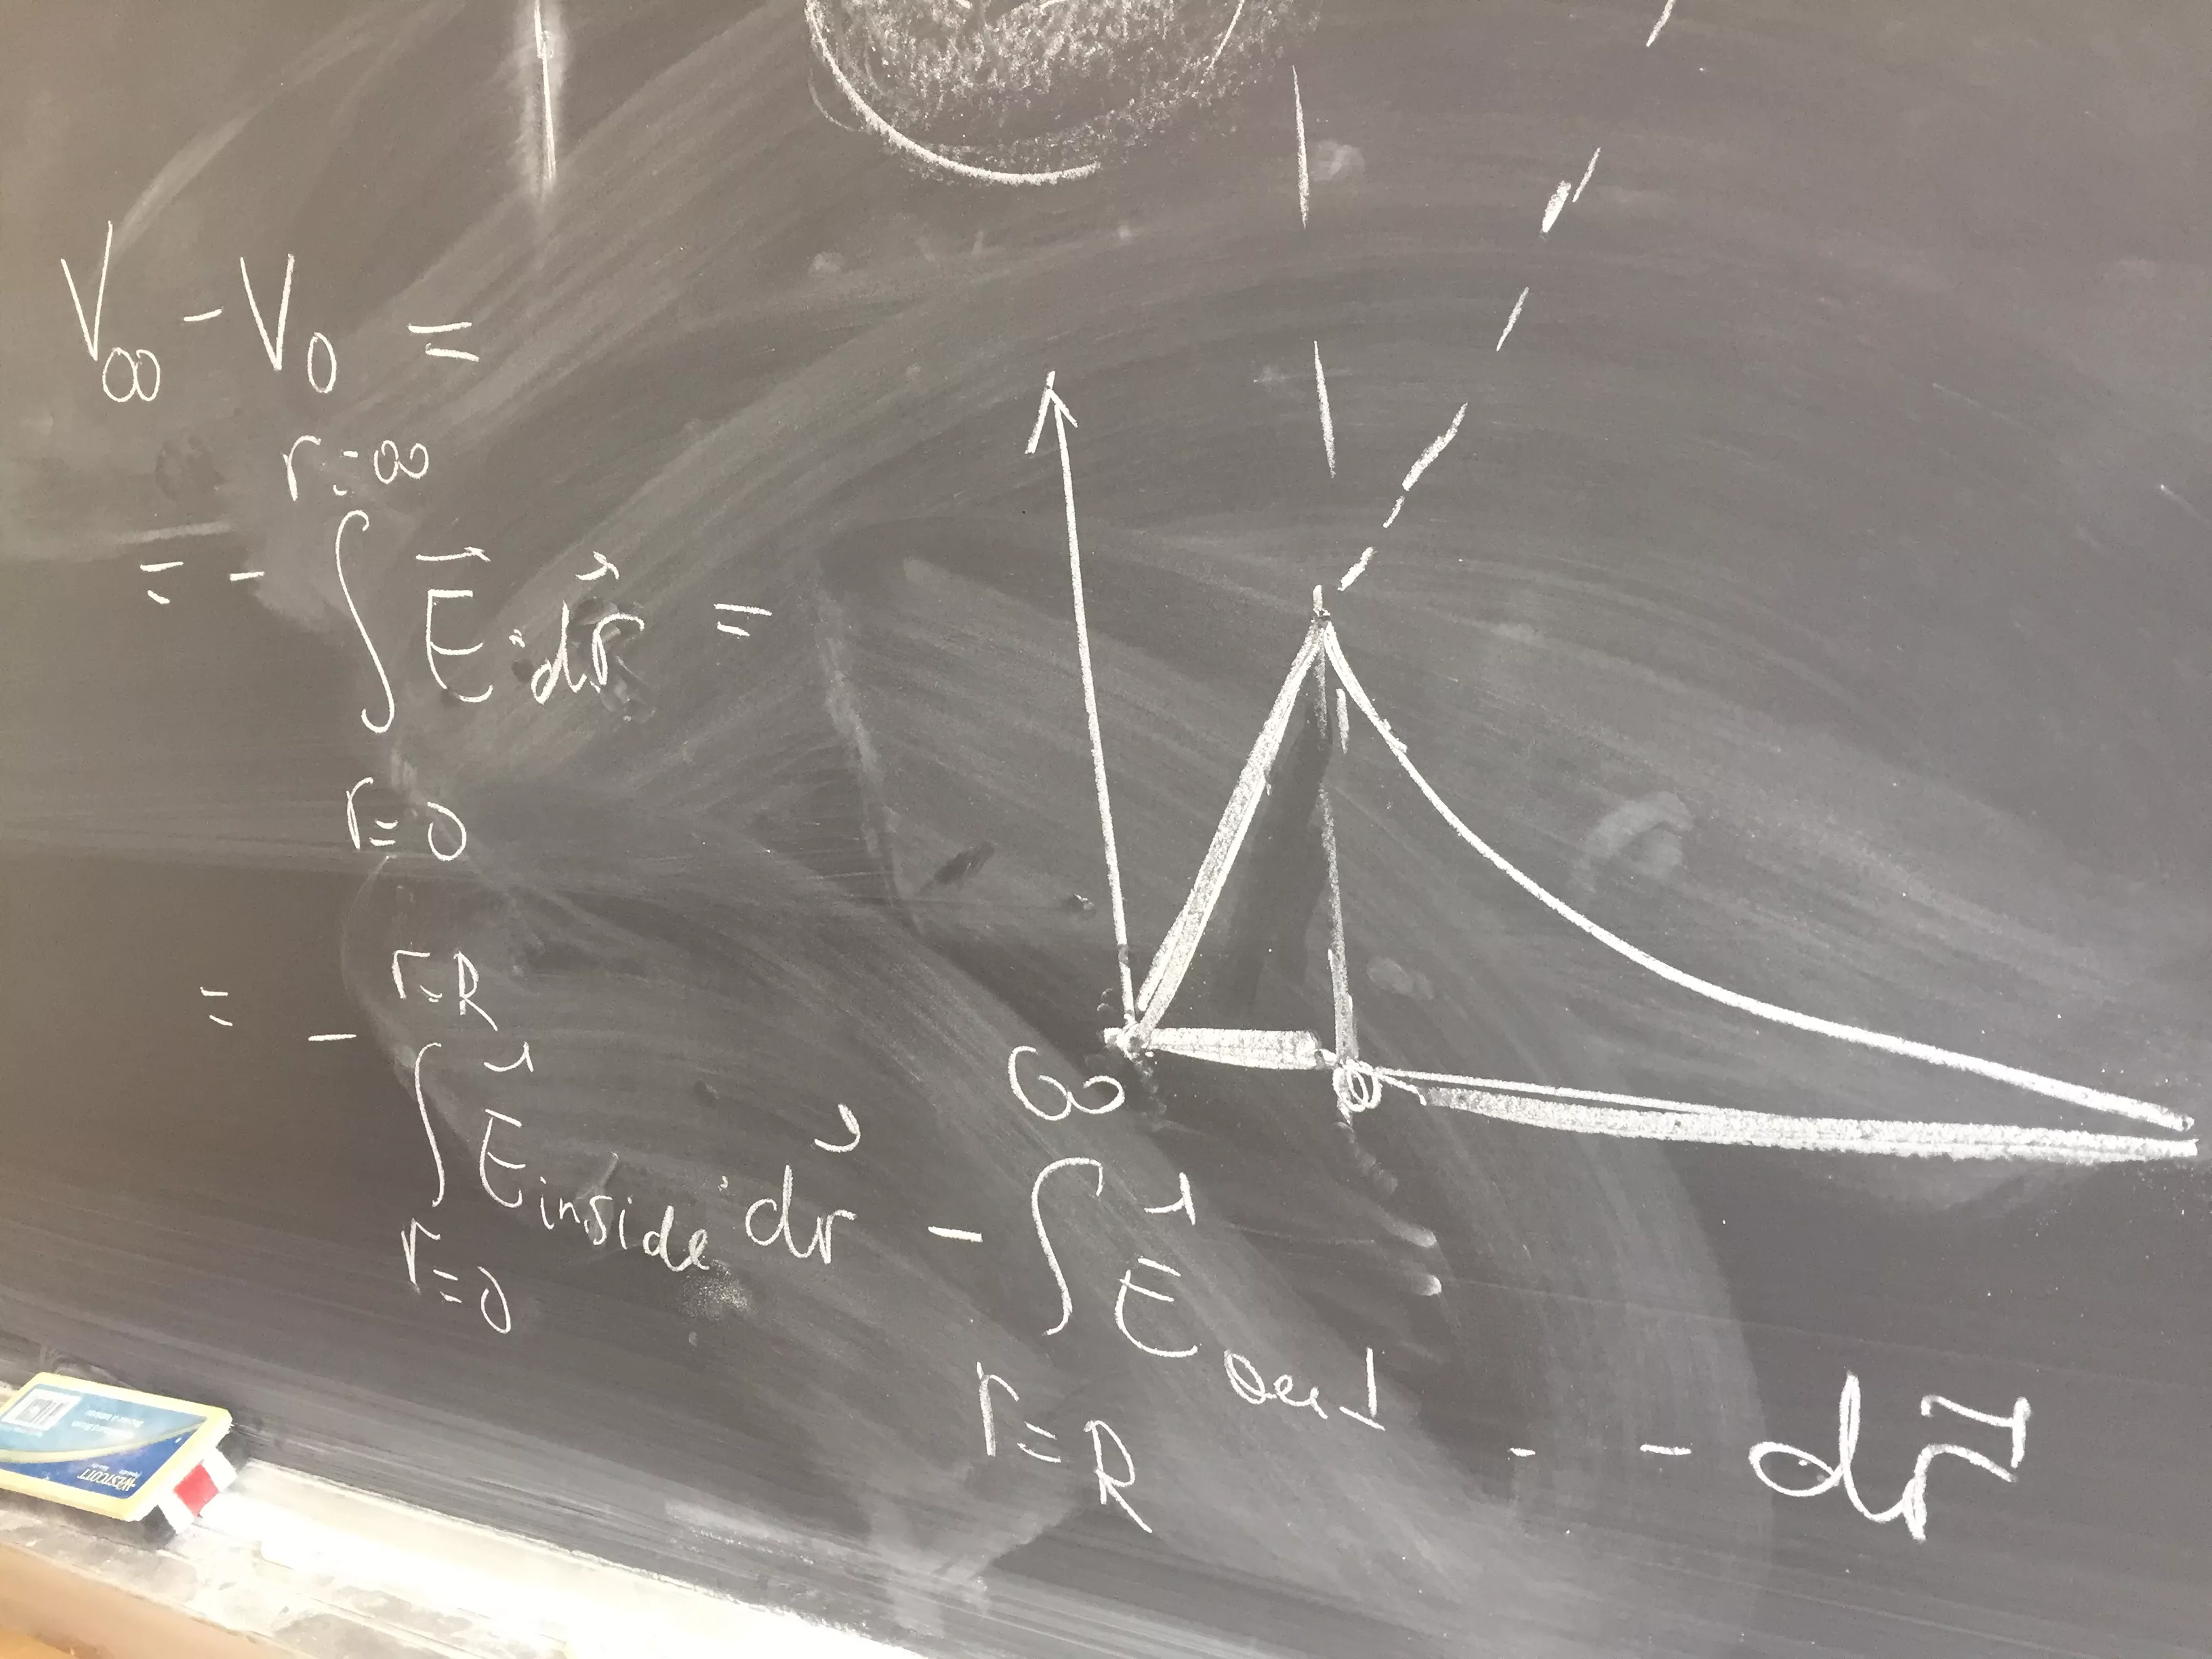 V∞ - V0 =
r=∞
= - ∫ E⃗ · dr⃗ =
r=0
r=R ∞
= - ∫ E⃗inside · dr⃗ - ∫ E⃗out · dr⃗
r=0 r=R
WESTCOTT